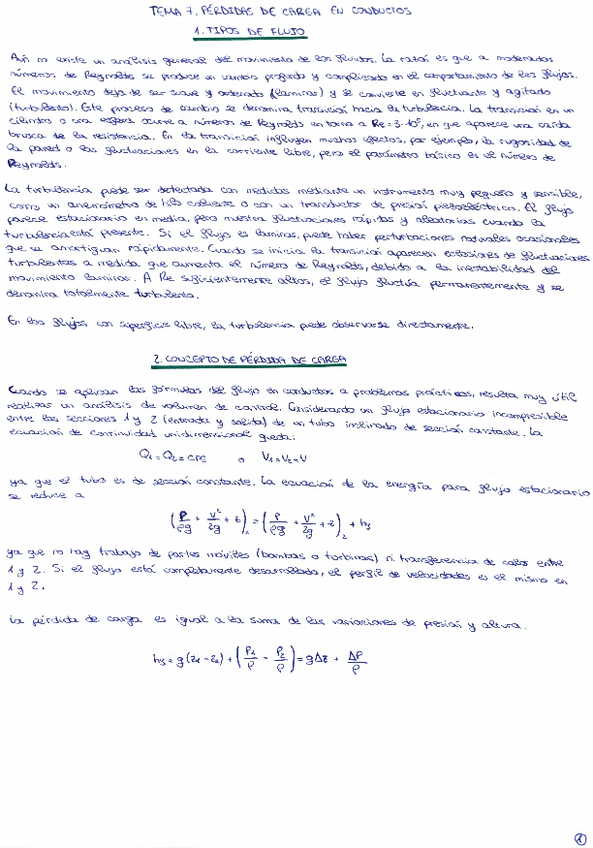 TEMA 7. PÉRDIDAS DE CARGA EN CONDUCTOS
1. TIPOS DE FLUJO
Aún no existe un análisis general del movimiento de los fluidos. La razón es que a moderados
números de Reynolds se produce un cambio profundo y complicado en el comportamiento de los flujos.
El movimiento deja de ser suave y ordenado (laminar) y se convierte en fluctuante y agitado
(turbulento). Este proceso de cambio se denomina transición hacia la turbulencia. La transición en un
cilindro o una esfera ocurre a números de Reynolds en torno a Re = 3·10⁵, en que aparece una caída
brusca de la resistencia. En la transición influyen muchos efectos, por ejemplo, la rugosidad de
la pared o las fluctuaciones en la corriente libre, pero el parámetro básico es el número de
Reynolds.
La turbulencia puede ser detectada con medidas mediante un instrumento muy pequeño y sensible,
como un anemómetro de hilo caliente o con un transductor de presión piezoeléctrico. El flujo
parece estacionario en media, pero muestra fluctuaciones rápidas y aleatorias cuando la
turbulencia está presente. Si el flujo es laminar, puede haber perturbaciones naturales ocasionales
que se amortiguan rápidamente. Cuando se inicia la transición aparecen emisiones de fluctuaciones
turbulentas a medida que aumenta el número de Reynolds, debido a la inestabilidad del
movimiento laminar. A Re suficientemente altos, el flujo fluctúa permanentemente y se
denomina totalmente turbulento.
En los flujos con superficie libre, la turbulencia puede observarse directamente.
2. CONCEPTO DE PÉRDIDA DE CARGA
Cuando se aplican las fórmulas del flujo en conductos a problemas prácticos, resulta muy útil
realizar un análisis de volumen de control. Considerando un flujo estacionario incompresible
entre las secciones 1 y 2 (entrada y salida) de un tubo inclinado de sección constante. La
ecuación de continuidad unidimensional queda:
Q₁ = Q₂ = cte o V₁ = V₂ = V
ya que el tubo es de sección constante. La ecuación de la energía para flujo estacionario
se reduce a
(P/ρg + V²/2g + z)₁ = (P/ρg + V²/2g + z)₂ + hf
ya que no hay trabajo de partes móviles (bombas o turbinas) ni transferencia de calor entre
1 y 2. Si el flujo está completamente desarrollado, el perfil de velocidades es el mismo en
1 y 2.
La pérdida de carga es igual a la suma de las variaciones de presión y altura.
hf = g(z₁ - z₂) + (P₁/ρ - P₂/ρ) = gΔz + ΔP/ρ
1